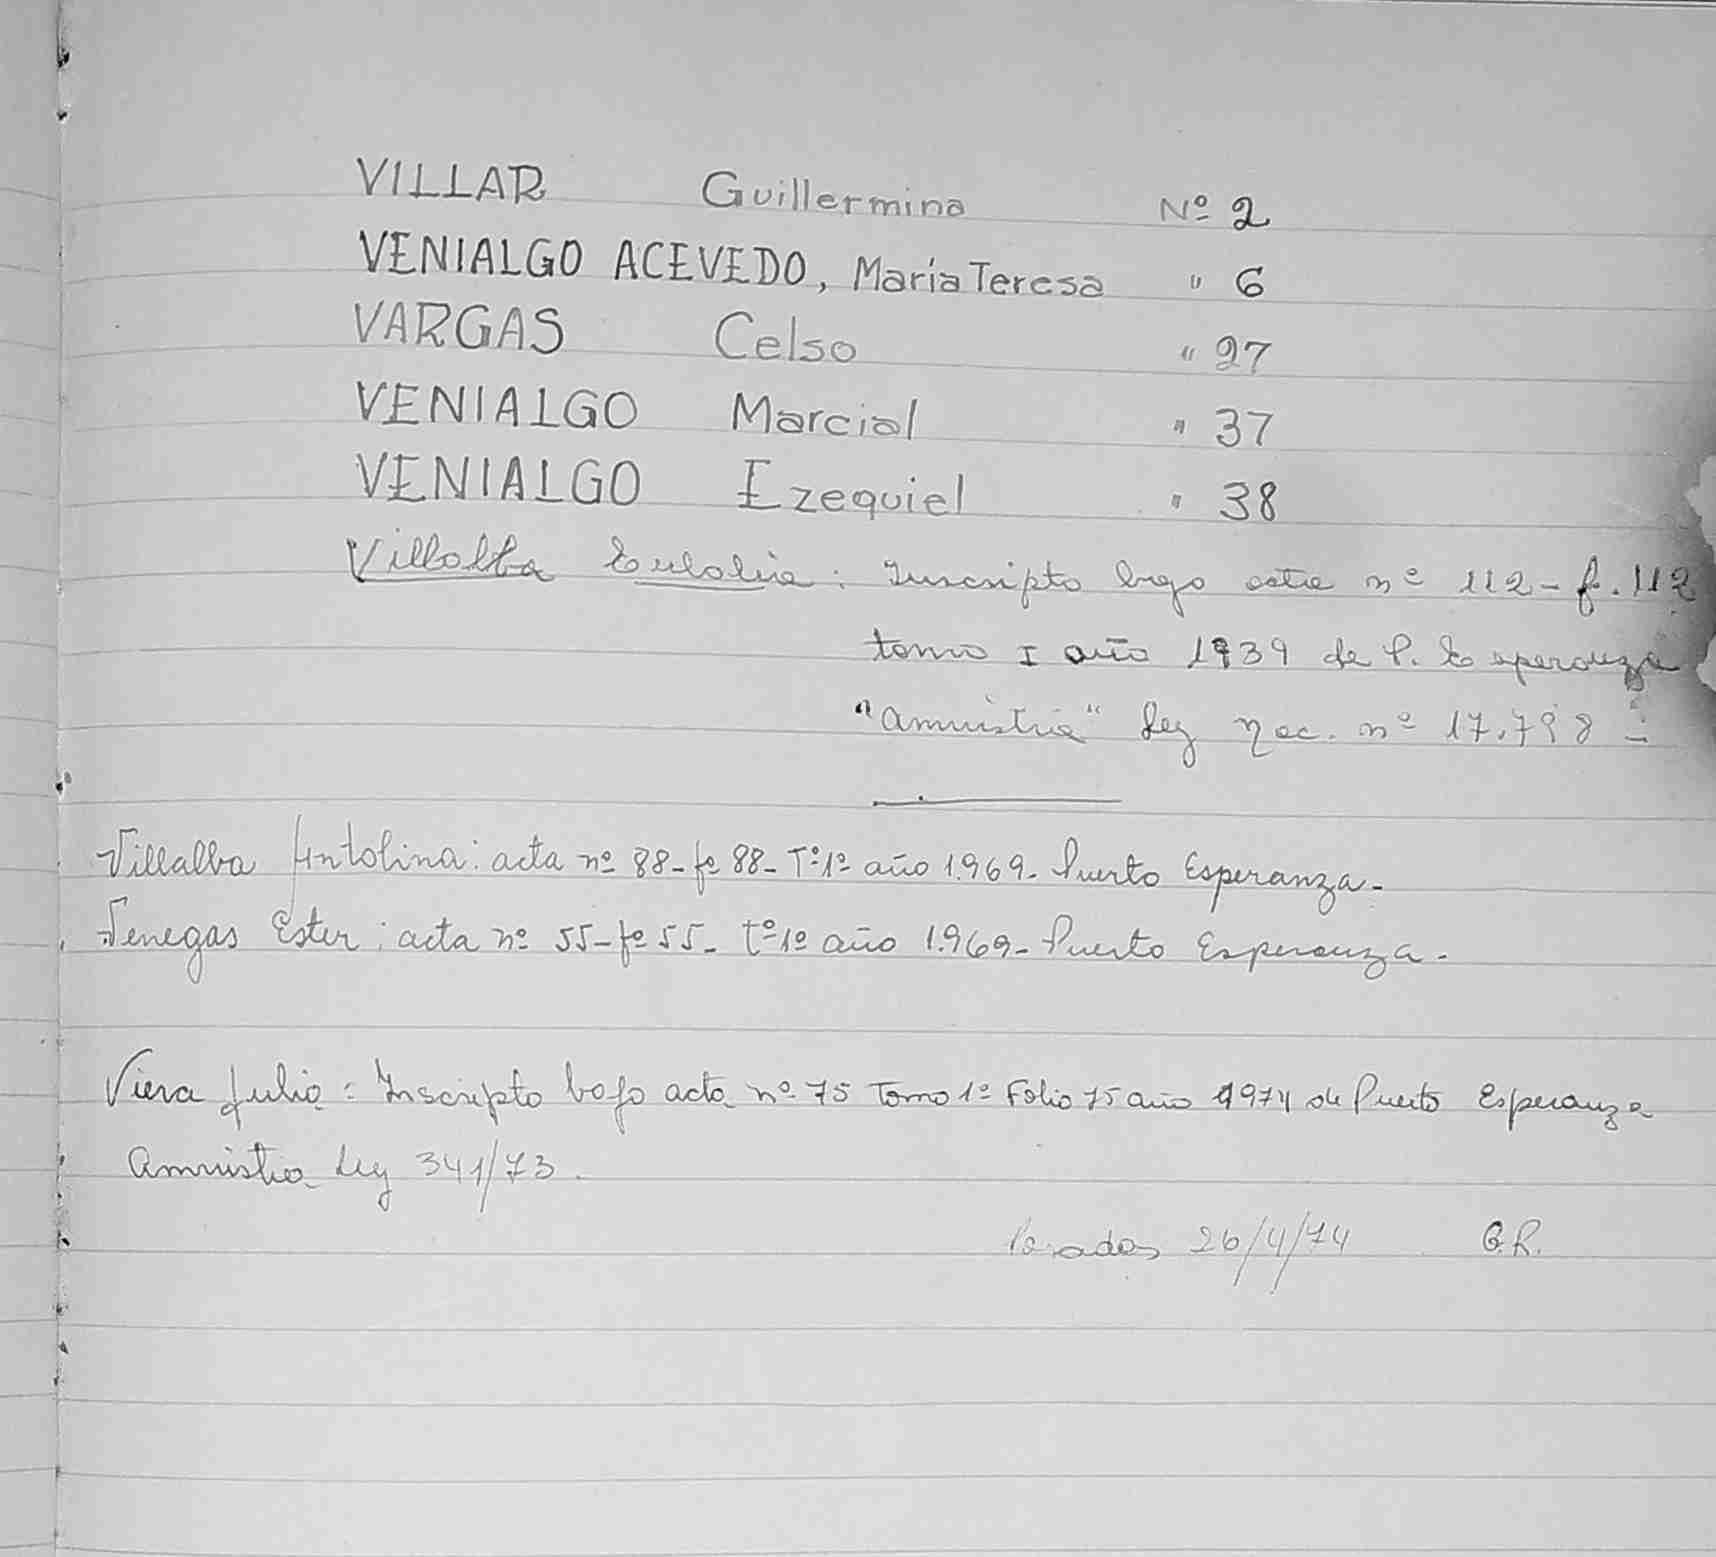 VILLAR Guillermina Nº 2
VENIALGO ACEVEDO, Maria Teresa " 6
VARGAS Celso " 27
VENIALGO Marcial " 37
VENIALGO Ezequiel " 38
Villalba Eulalia : Inscripto bajo acta nº 112 - f. 112
tomo I año 1939 de P. Esperanza
"amnistia" Ley Nac. nº
Villalba Antolina: acta nº 88 - fº 88 - Tº 1º año 1.969 - Puerto Esperanza -
Venegas Ester : acta nº 55 - fº 55 - tº 1º año 1.969 - Puerto Esperanza -
Viera Julio : Inscripto bajo acta nº 75 Tomo 1º Folio 75 año 1974 de Puerto Esperanza
Amnistia Ley 341/73.
Posadas 26/4/74 G.R.